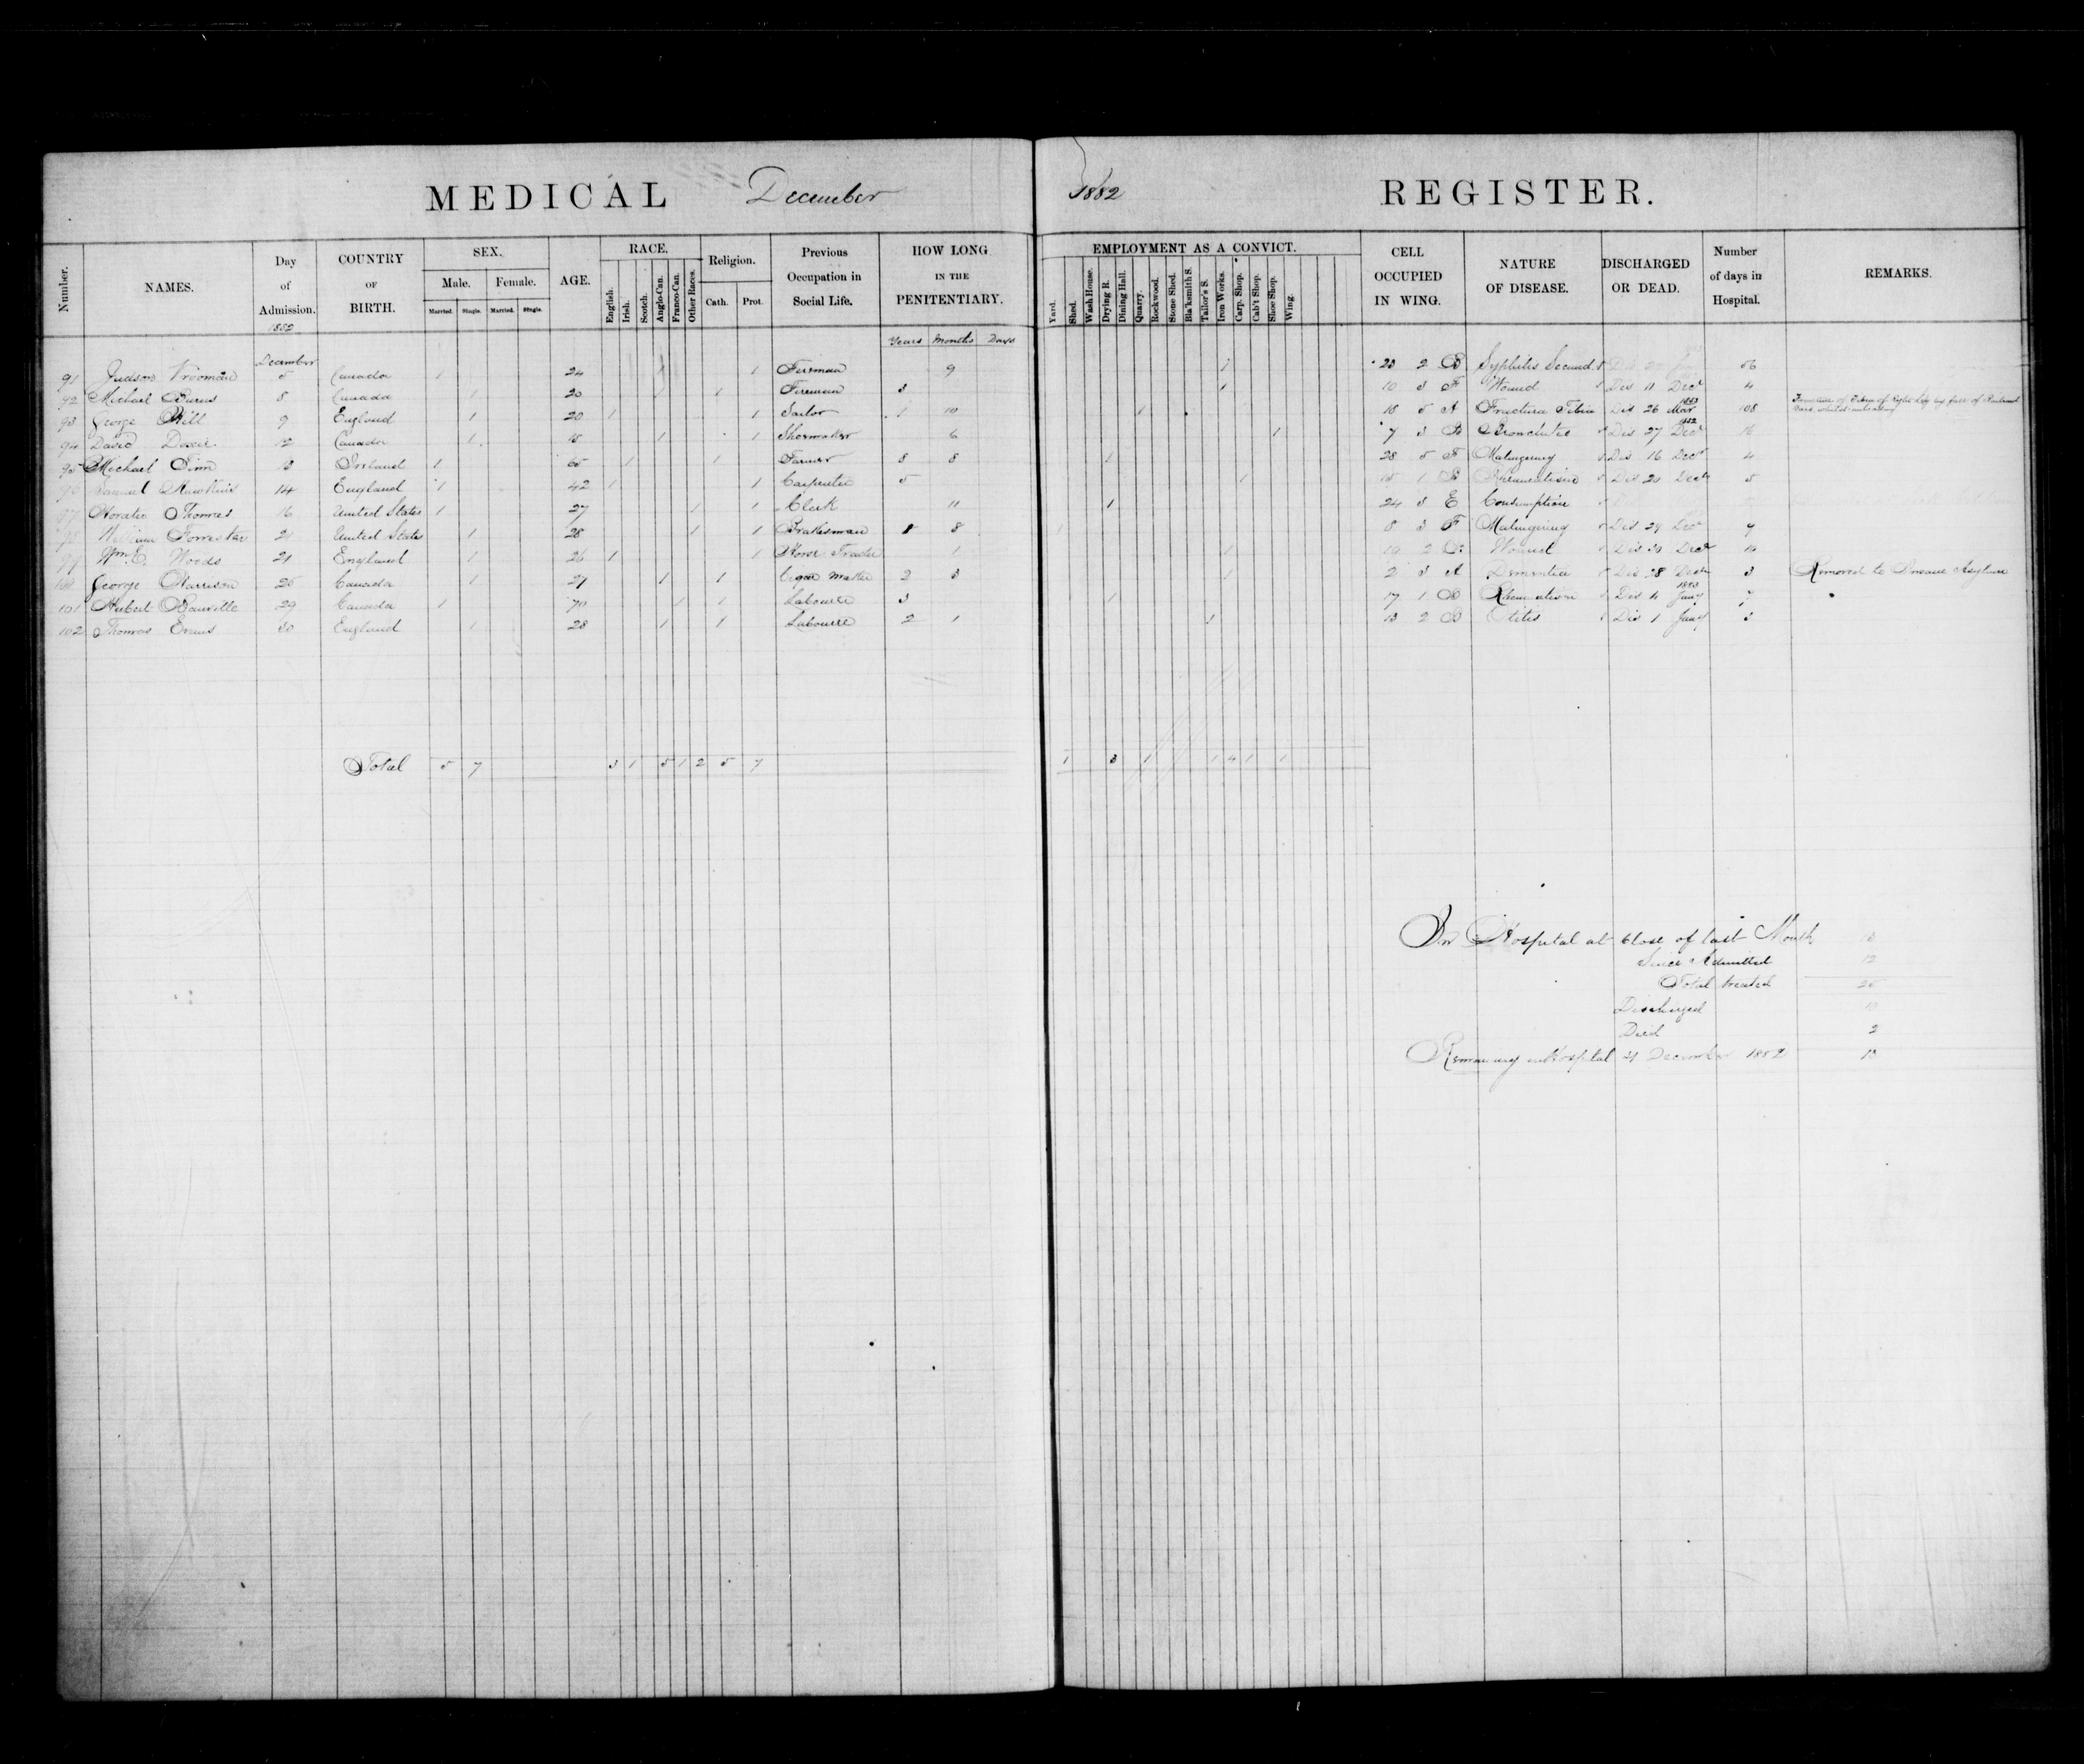 MEDICAL December 1882 REGISTER.
Number. NAMES. Day of Admission. COUNTRY OF BIRTH. SEX. Male. Female. Married. Single. Married. Single. AGE. RACE. English. Irish. Scotch. Anglo-Can. Franco-Can. Other Races. Religion. Cath. Prot. Previous Occupation in Social Life. HOW LONG IN THE PENITENTIARY.
EMPLOYMENT AS A CONVICT. Yard. Shed. Wash House. Drying R. Dining Hall. Quarry. Rockwood. Stone Shed. Bla'ksmith S. Tailor's S. Iron Works. Carp. Shop. Cab't Shop. Shoe Shop. Wing. CELL OCCUPIED IN WING. NATURE OF DISEASE. DISCHARGED OR DEAD. Number of days in Hospital. REMARKS.
1882
Years Months Days
December
91 Judson Vrooman 5 Canada 1 24 1 1 Fireman 9 1 23 2 B Syphilis Secund. Dis 56
92 Michael Burns 8 Canada 1 20 1 1 Fireman 3 1 10 3 F Wound Dis 11 Decr 4
93 George Hill 9 England 1 20 1 1 Sailor 1 10 1 18 5 A Fractura Tibia Dis 26 Mar 1883 108 Fracture of Tibia of Right Leg by fall of Railroad Cars whilst unloading
94 David Davie 12 Canada 1 18 1 1 Shoemaker 6 1 7 3 B Bronchitis Dis 27 Decr 1882 16
95 Michael Finn 13 Ireland 1 65 1 1 Farmer 8 8 1 28 5 F Malingering Dis 16 Decr 4
96 Samuel Hawkins 14 England 1 42 1 1 Carpenter 5 1 15 1 B Rheumatism Dis 20 Decr 5
97 Horatio Thomas 16 United States 1 27 1 1 Clerk 11 1 24 3 E Consumption
98 William Forrester 21 United States 1 28 1 1 Brakesman 1 8 1 8 3 F Malingering Dis 29 Decr 9
99 Wm. E. Woods 21 England 1 26 1 1 Horse Trader 1 1 19 2 Wound Dis 30 Decr 10
100 George Harrison 25 Canada 1 27 1 1 Cigar maker 2 3 1 2 3 A Dementia Dis 28 Decr 3 Removed to Insane Asylum
101 Hubert Bauville 29 Canada 1 70 1 1 Labourer 3 1 17 1 B Rheumatism Dis 4 Jany 1883 7
102 Thomas Evans 30 England 1 28 1 1 Labourer 2 1 1 13 2 B Otitis Dis 1 Jany 3
Total 5 7 3 1 5 1 2 5 7 1 3 1 1 4 1 1
In Hospital at Close of last Month 13
Since Admitted 12
Total treated 25
Discharged 10
Died 2
Remaining in Hospital 31 December 1882 13